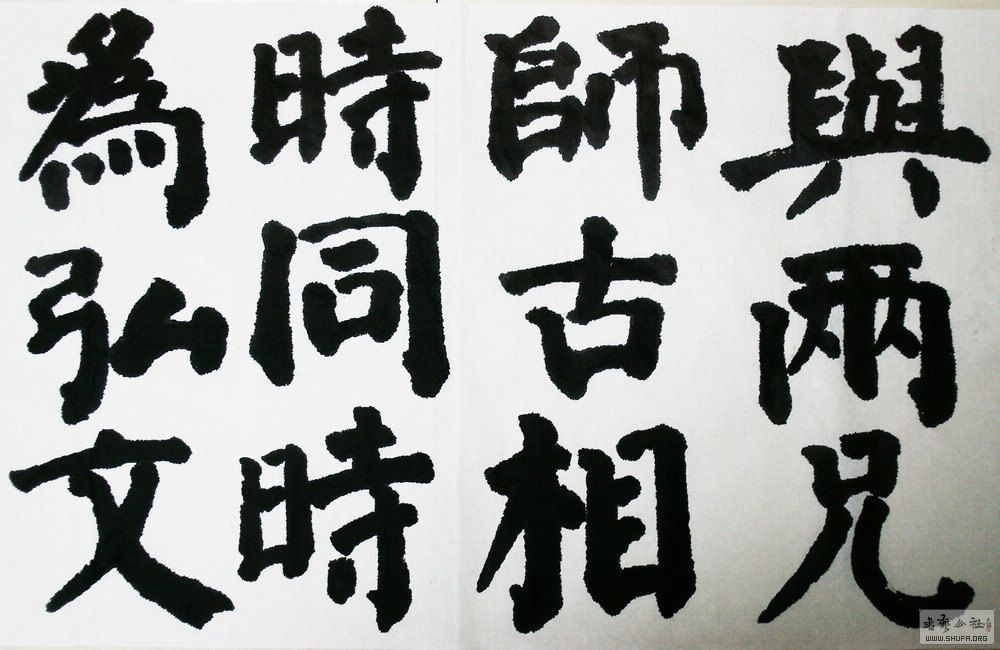 與兩兄
師古相
時同時
為弘文
WWW.SHUFA.ORG